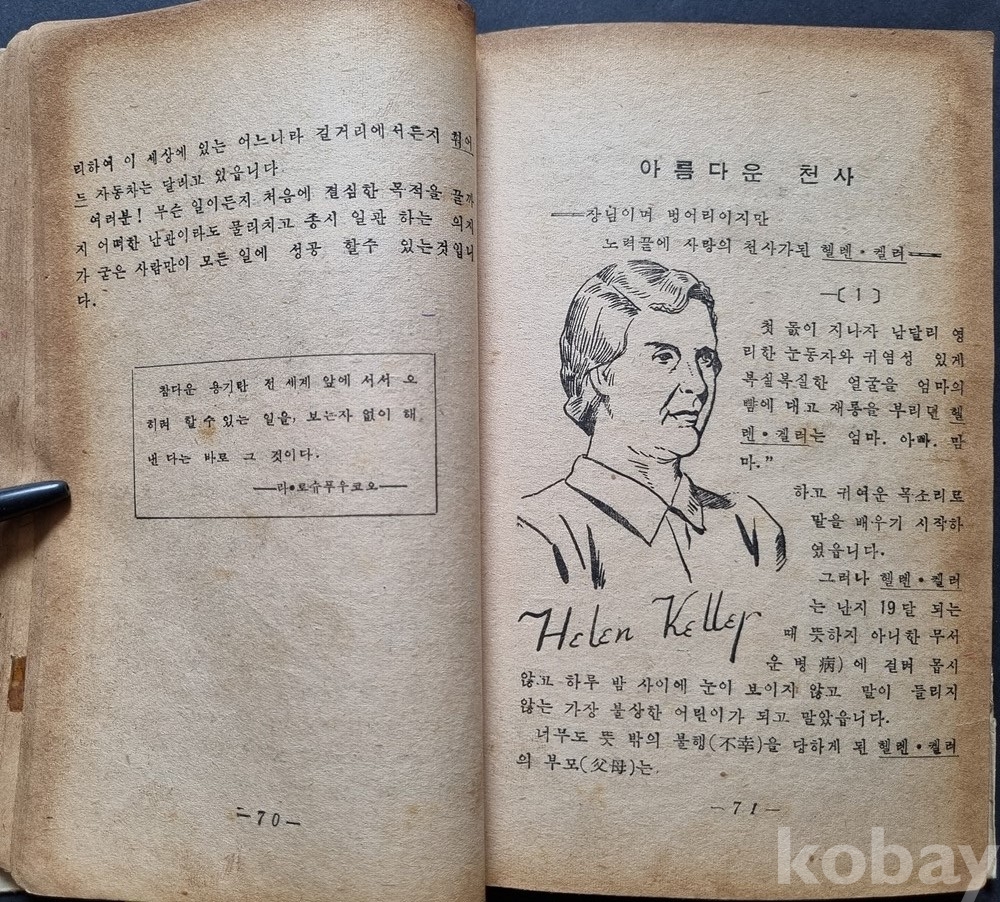 리하여 이 세상에 있는 어느나라 길거리에서든지 훠어
드 자동차는 달리고 있읍니다.
여러분! 무슨 일이든지 처음에 결심한 목적을 끝까
지 어떠한 난관이라도 물리치고 종시 일관 하는 의지
가 굳은 사람만이 모든 일에 성공 할수 있는것입니
다.
참다운 용기란 전 세계 앞에 서서 오
히려 할 수 있는 일을, 보는자 없이 해
낸다는 바로 그 것이다.
——라•로슈푸우코오——
—70—
아름다운 천사
——장님이며 벙어리이지만
노력끝에 사랑의 천사가된 헬렌•켈러——
—〔1〕
첫 돐이 지나자 남달리 영
리한 눈동자와 귀염성 있게
복질복질한 얼굴을 엄마의
뺨에 대고 재롱을 부리던 헬
렌•켈러는 엄마. 아빠. 맘
마.”
하고 귀여운 목소리로
말을 배우기 시작하
였읍니다.
그러나 헬렌•켈러
는 난지 19달 되는
때 뜻하지 아니한 무서
운 병 病) 에 걸려 몹시
Helen Keller
않고 하루 밤 사이에 눈이 보이지 않고 말이 들리지
않는 가장 불상한 어린이가 되고 말았읍니다.
너무도 뜻 밖의 불행(不幸)을 당하게 된 헬렌•켈러
의 부모(父母)는
—71—
kobay